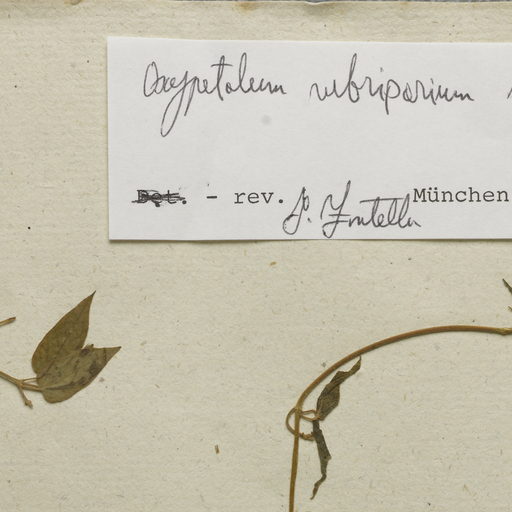 Oxypetalum rubriparium
Det. - rev. J. Fontella München